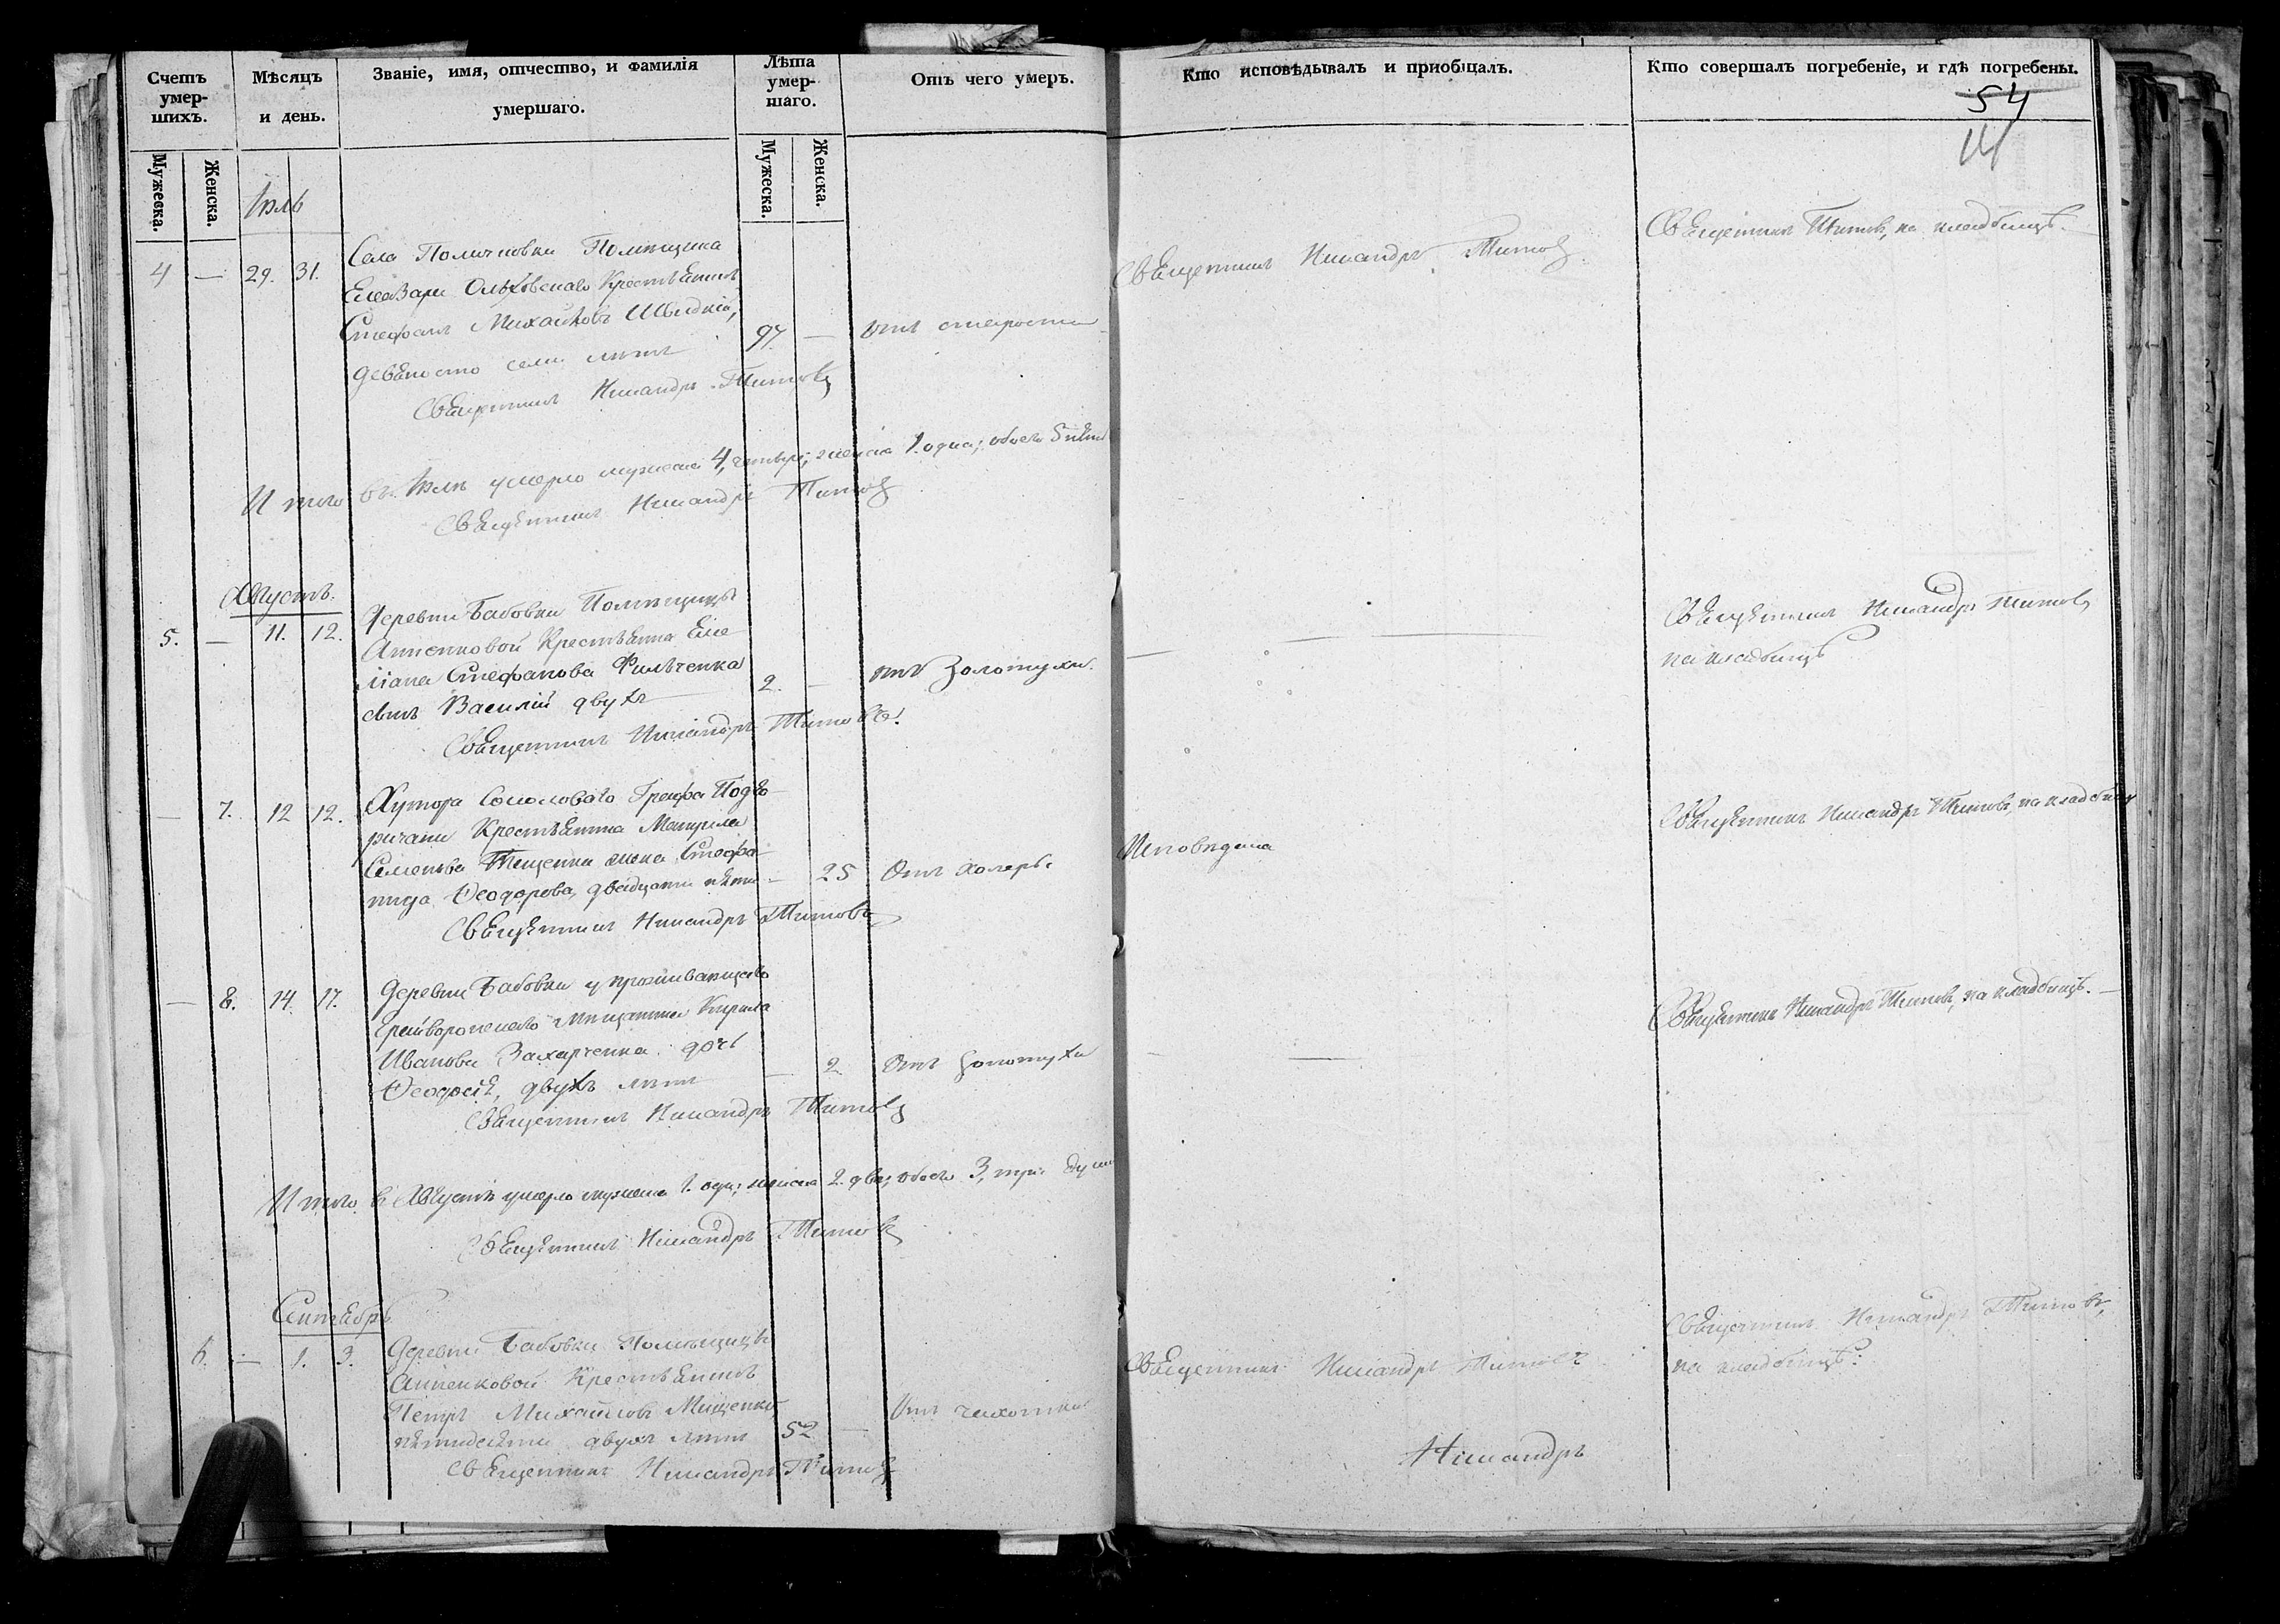 Счетъ умер-шихъ.
Мѣсяцъ и день.
Званіе, имя, отчество, и фамилія умершаго.
Лѣта умер-шаго.
Отъ чего умеръ.
Кто исповѣдывалъ и пріобщалъ.
Кто совершалъ погребеніе, и гдѣ погребены.
54
14
Мужеска.
Женска.
Мужеска.
Женска.
Іюль
4 — 29. 31.
Села Поличковки Помѣщика
Ольховскаго Крестьянинъ
Стефанъ Михайловъ Швыдкій,
девяносто семи лѣтъ
97 — отъ старости
Священникъ Никандръ Титовъ
Священникъ Никандръ Титовъ.
Священникъ Титовъ, на кладбищѣ.
Итого въ Іюлѣ умерло мужеска 4, четыре, женска 1. одна; обоего 5 пять
Священникъ Никандръ Титовъ
Августъ.
5. — 11. 12.
Деревни Бабовки Помѣщицы
Анненковой Крестьянина Еме
ліана Стефанова Фильченка
сынъ Василій двухъ
2. — отъ золотухи.
Священникъ Никандръ Титовъ.
Священникъ Никандръ Титовъ,
на кладбищѣ
— 7. 12 12.
Хутора Соколоваго Графа Подго-
ричани Крестьянина Маѯрила
Семенова Тещенка жена Стефа-
нида Ѳеодорова, двадцати пяти —
25 Отъ холеры
Священникъ Никандръ Титовъ
Исповѣдана
Священникъ Никандръ Титовъ, на кладбищѣ
— 8. 14. 17.
Деревни Бабовки у проживающаго
Грайворонскаго мѣщанина Кирила
Иванова Захарченка дочь
Ѳеодосія, двухъ лѣтъ
— 2 Отъ золотухи
Священникъ Никандръ Титовъ
Священникъ Никандръ Титовъ, на кладбищѣ. —
Итого въ Августѣ умерло мужеска 1. одинъ; женска 2. двѣ; обоего 3, три души
Священникъ Никандръ Титовъ
Сентябрь
6. — 1. 3.
Деревни Бабовки Помѣщицы
Анненковой Крестьянинъ
Петръ Михайловъ Мищенко,
пятидесяти двухъ лѣтъ
52 — Отъ чахотки
Священникъ Никандръ Титовъ
Священникъ Никандръ Титовъ
Священникъ Никандръ Титовъ,
на кладбищѣ.
Никандръ